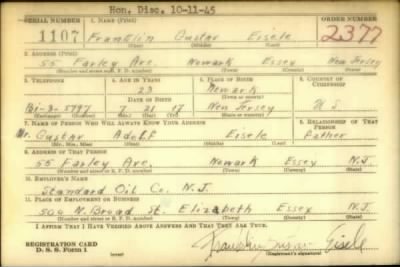 Hon. Disc. 10-11-45
SERIAL NUMBER 1. NAME (Print) ORDER NUMBER
1107 Franklin Gustav Eisele 2377
(First) (Middle) (Last)
2. ADDRESS (Print)
55 Farley Ave. Newark Essex New Jersey
(Number and street or R. F. D. number) (Town) (County) (State)
3. TELEPHONE 4. AGE IN YEARS 5. PLACE OF BIRTH 6. COUNTRY OF CITIZENSHIP
23 Newark
DATE OF BIRTH (Town or county)
Bi-3-5797 7 21 17 New Jersey U S
(Exchange) (No.) (Mo.) (Day) (Yr.) (State or country)
7. NAME OF PERSON WHO WILL ALWAYS KNOW YOUR ADDRESS 8. RELATIONSHIP OF THAT PERSON
Mr. Gustav Adolf Eisele Father
(Mr., Mrs., Miss) (First) (Middle) (Last)
9. ADDRESS OF THAT PERSON
55 Farley Ave. Newark Essex N.J.
(Number and street or R. F. D. number) (Town) (County) (State)
10. EMPLOYER'S NAME
Standard Oil Co. N.J.
11. PLACE OF EMPLOYMENT OR BUSINESS
500 N. Broad St. Elizabeth Essex N.J.
(Number and street or R. F. D. number) (Town) (County) (State)
I AFFIRM THAT I HAVE VERIFIED ABOVE ANSWERS AND THAT THEY ARE TRUE.
REGISTRATION CARD
D. S. S. Form 1 (over) Franklin Gustav Eisele
(Registrant's signature)